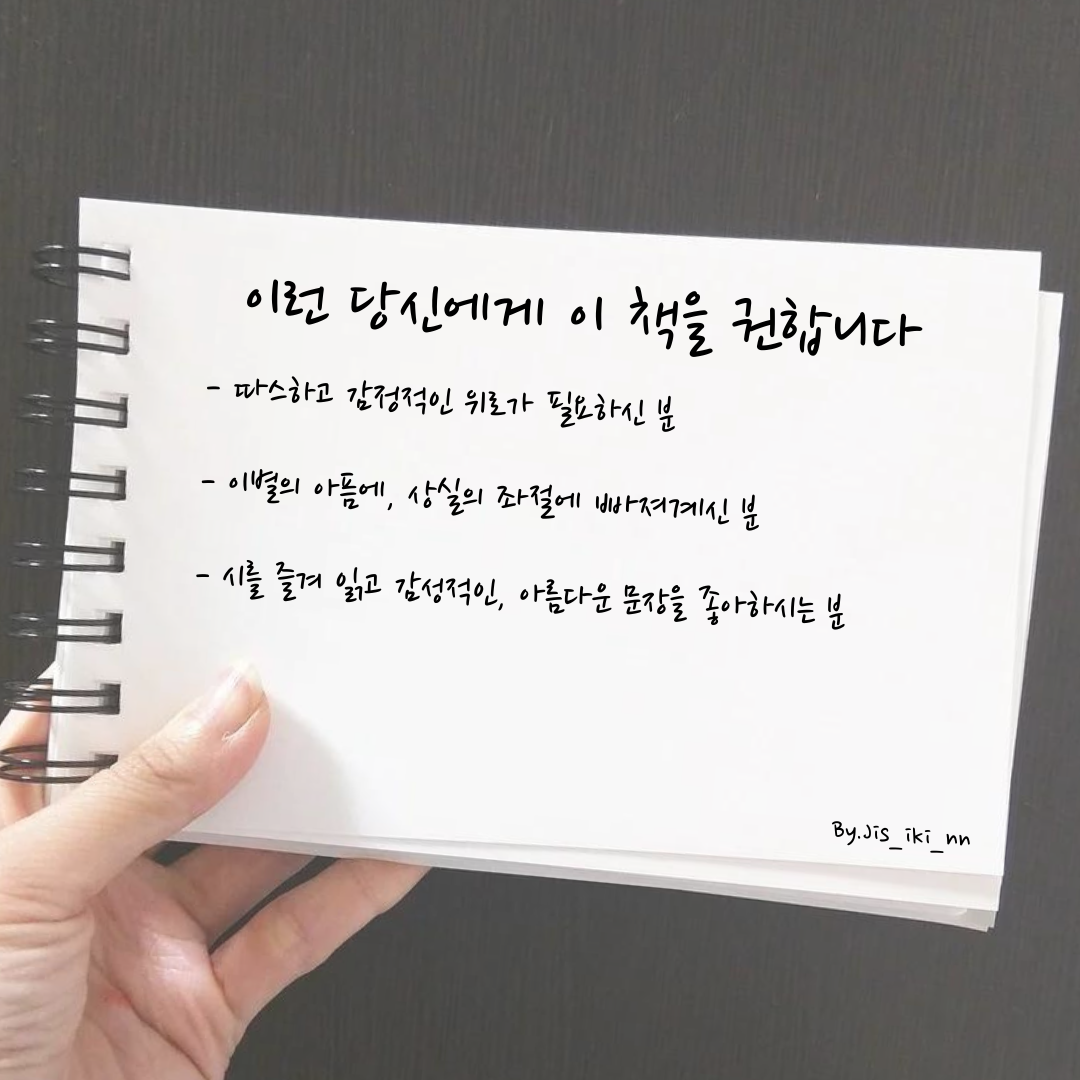 이런 당신에게 이 책을 권합니다
- 따스하고 감정적인 위로가 필요하신 분
- 이별의 아픔에, 상실의 좌절에 빠져계신 분
- 시를 즐겨 읽고 감성적인, 아름다운 문장을 좋아하시는 분
By.Jis_iki_nn